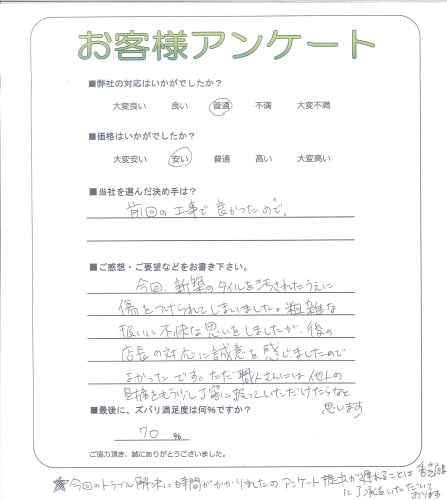 お客様アンケート
■弊社の対応はいかがでしたか?
大変良い 良い 普通 不満 大変不満
■価格はいかがでしたか?
大変安い 安い 普通 高い 大変高い
■当社を選んだ決め手は?
前回の工事で良かったので。
■ご感想・ご要望などをお書き下さい。
今回、新築のタイルを汚されたうえに
傷をつけられてしまいました。粗雑な
扱いに不快な思いをしましたが、後の
店長の対応に誠意を感じましたので
よかったです。ただ職人さんには他人の
財産をもう少し丁寧に扱っていただけたらなと
思います。
■最後に、ズバリ満足度は何%ですか?
70 %
ご協力頂き、誠にありがとうございました。
今回のトラブル解決に時間がかかりましたのでアンケート提出が遅れることは
に了承をいただいて
おります